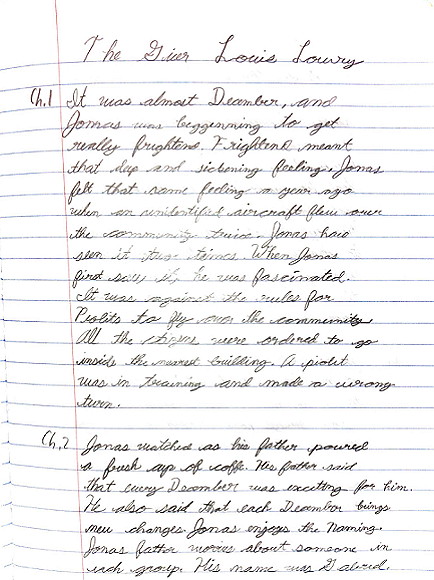 The Giver Louis Lowry
Ch.1 It was almost December, and
Jonas was beggenning to get
really frightend. Frightend meant
that deep and sickening feeling. Jonas
felt that same feeling a year ago
when an unidentified aircraft flew over
the community twice. Jonas had
seen it two times. When Jonas
first saw it, he was fascinated.
It was against the rules for
Piolits to fly over the community
All the citizens were ordered to go
inside the nearest building. A piolit
was in training and made a wrong
turn.
Ch.2 Jonas watched as his father poured
a fresh cup of coffe. His father said
that every December was exciting for him.
He also said that each December brings
new changes. Jonas enjoys the Naming.
Jonas father worries about someone in
each group. His name was Gabriel.